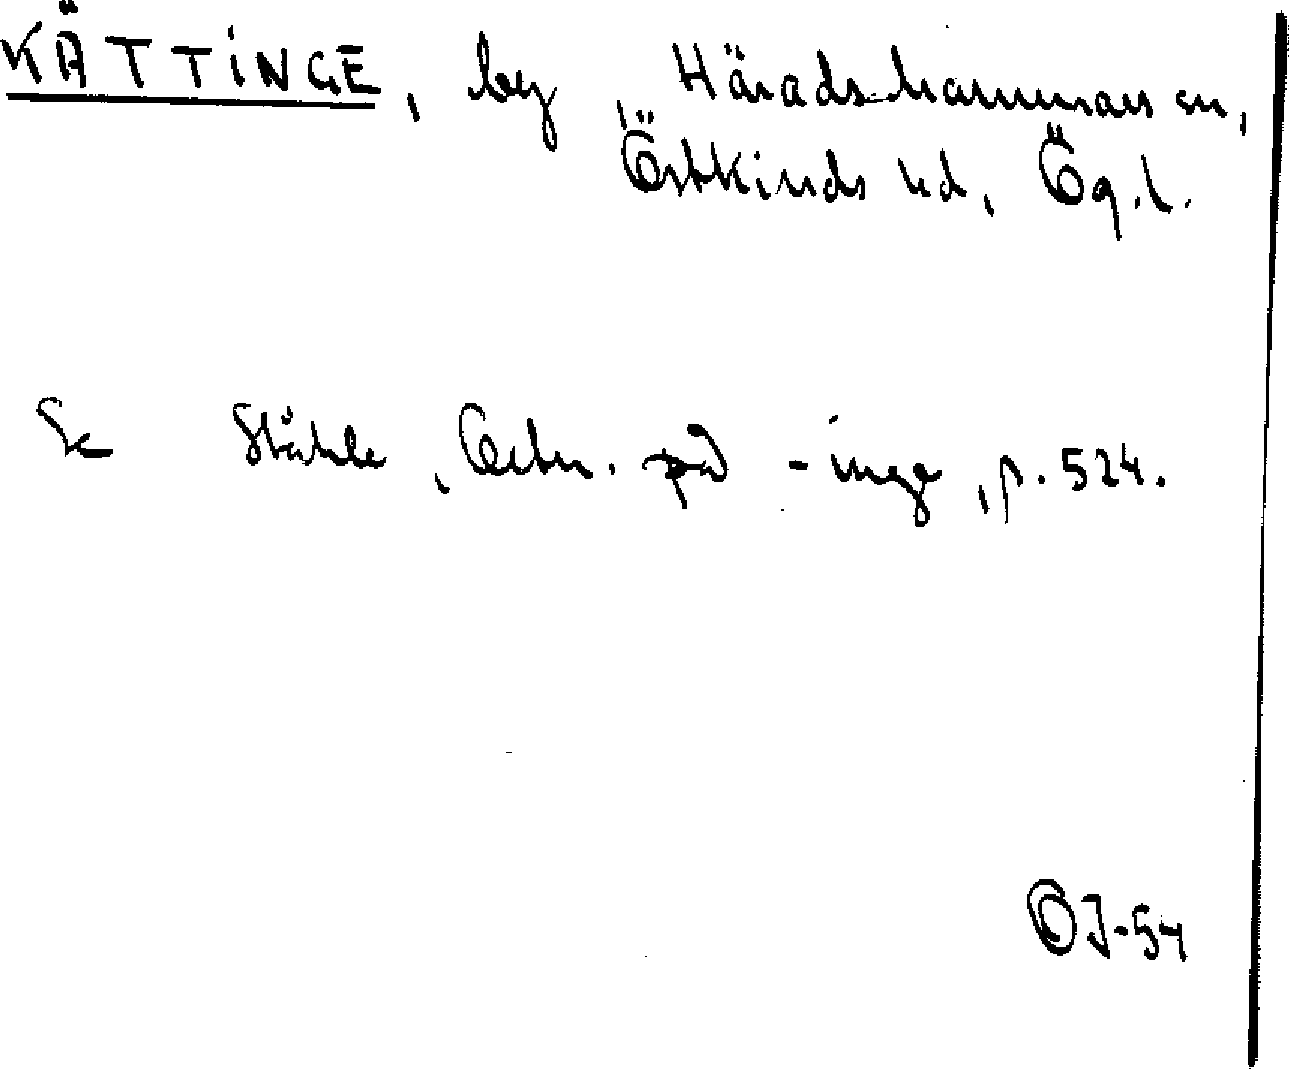 KÄTTINGE, by, Häradshammars sn,
Östkinds hd, Ög.l.
Se Ståhle, Ortn. på -inge, p. 524.
OJ-54